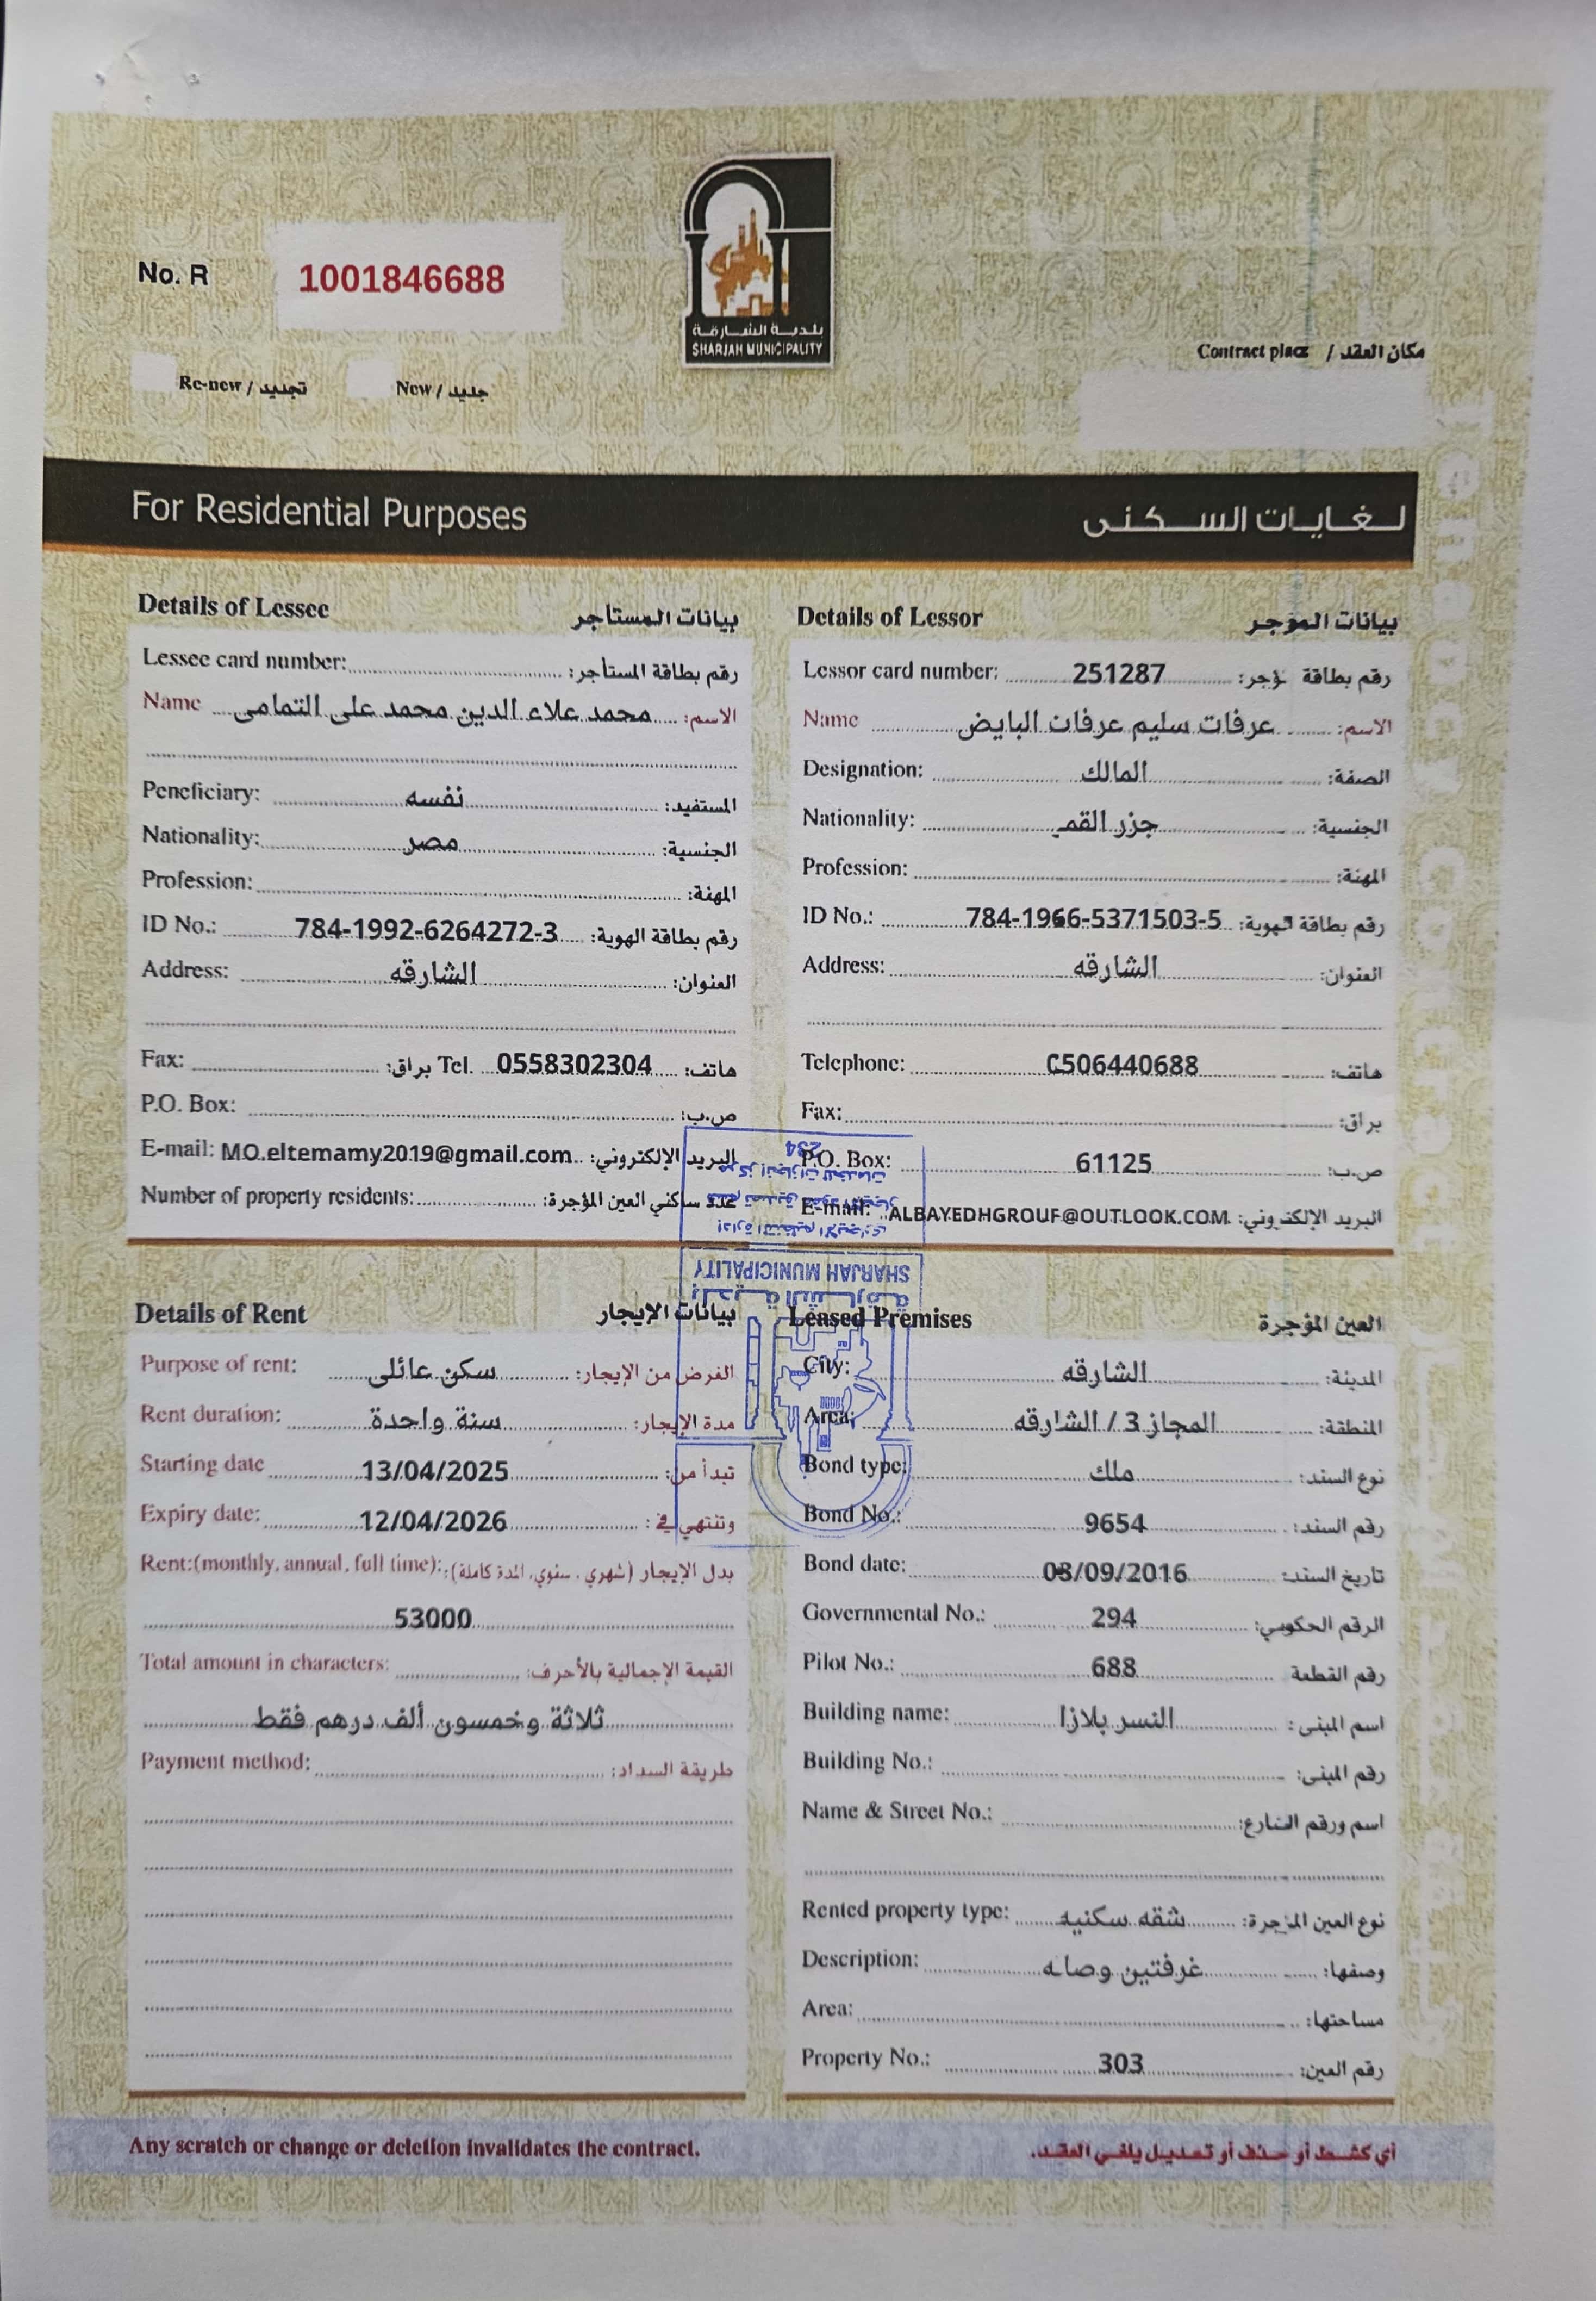 No. R 1001846688
بلدية الشارقة
SHARJAH MUNICIPALITY
Contract place / مكان العقد
Re-new / تجديد New / جديد
For Residential Purposes لغايات السكنى
Details of Lessee بيانات المستأجر
Lessee card number: رقم بطاقة المستأجر:
Name محمد علاء الدين محمد على التمامى الاسم:
Peneficiary: نفسه المستفيد:
Nationality: مصر الجنسية:
Profession: المهنة:
ID No.: 784-1992-6264272-3 رقم بطاقة الهوية:
Address: الشارقه العنوان:
Fax: براق: Tel. 0558302304 هاتف:
P.O. Box: ص.ب:
E-mail: MO.eltemamy2019@gmail.com البريد الإلكتروني:
Number of property residents: عدد ساكني العين المؤجرة:
Details of Lessor بيانات المؤجر
Lessor card number: 251287 رقم بطاقة ؤجر:
Name عرفات سليم عرفات البايض الاسم:
Designation: المالك الصفة:
Nationality: جزر القمر الجنسية:
Profession: المهنة:
ID No.: 784-1966-5371503-5 رقم بطاقة الهوية:
Address: الشارقه العنوان:
Telephone: 0506440688 هاتف:
Fax: براق:
P.O. Box: 61125 ص.ب:
E-mail: ALBAYEDHGROUF@OUTLOOK.COM البريد الإلكتروني:
234
SHARJAH MUNICIPALITY
بلدية الشارقة
Details of Rent بيانات الإيجار
Purpose of rent: سكن عائلى الغرض من الإيجار:
Rent duration: سنة واحدة مدة الإيجار:
Starting date 13/04/2025 تبدأ من:
Expiry date: 12/04/2026 وتنتهي في:
Rent:(monthly, annual, full time): بدل الإيجار (شهري، سنوي، المدة كاملة):
53000
Total amount in characters: القيمة الإجمالية بالأحرف:
ثلاثة وخمسون ألف درهم فقط
Payment method: طريقة السداد:
Leased Premises العين المؤجرة
City: الشارقه المدينة:
Area: المجاز 3 / الشارقه المنطقة:
Bond type: ملك نوع السند:
Bond No.: 9654 رقم السند:
Bond date: 08/09/2016 تاريخ السند:
Governmental No.: 294 الرقم الحكومي:
Pilot No.: 688 رقم القطعة
Building name: النسر بلازا اسم المبنى:
Building No.: رقم المبنى:
Name & Street No.: اسم ورقم الشارع:
Rented property type: شقه سكنيه نوع العين المؤجرة:
Description: غرفتين وصاله وصفها:
Area: مساحتها:
Property No.: 303 رقم العين:
Any scratch or change or deletion invalidates the contract. أي كشط أو حذف أو تعديل يلغي العقد.